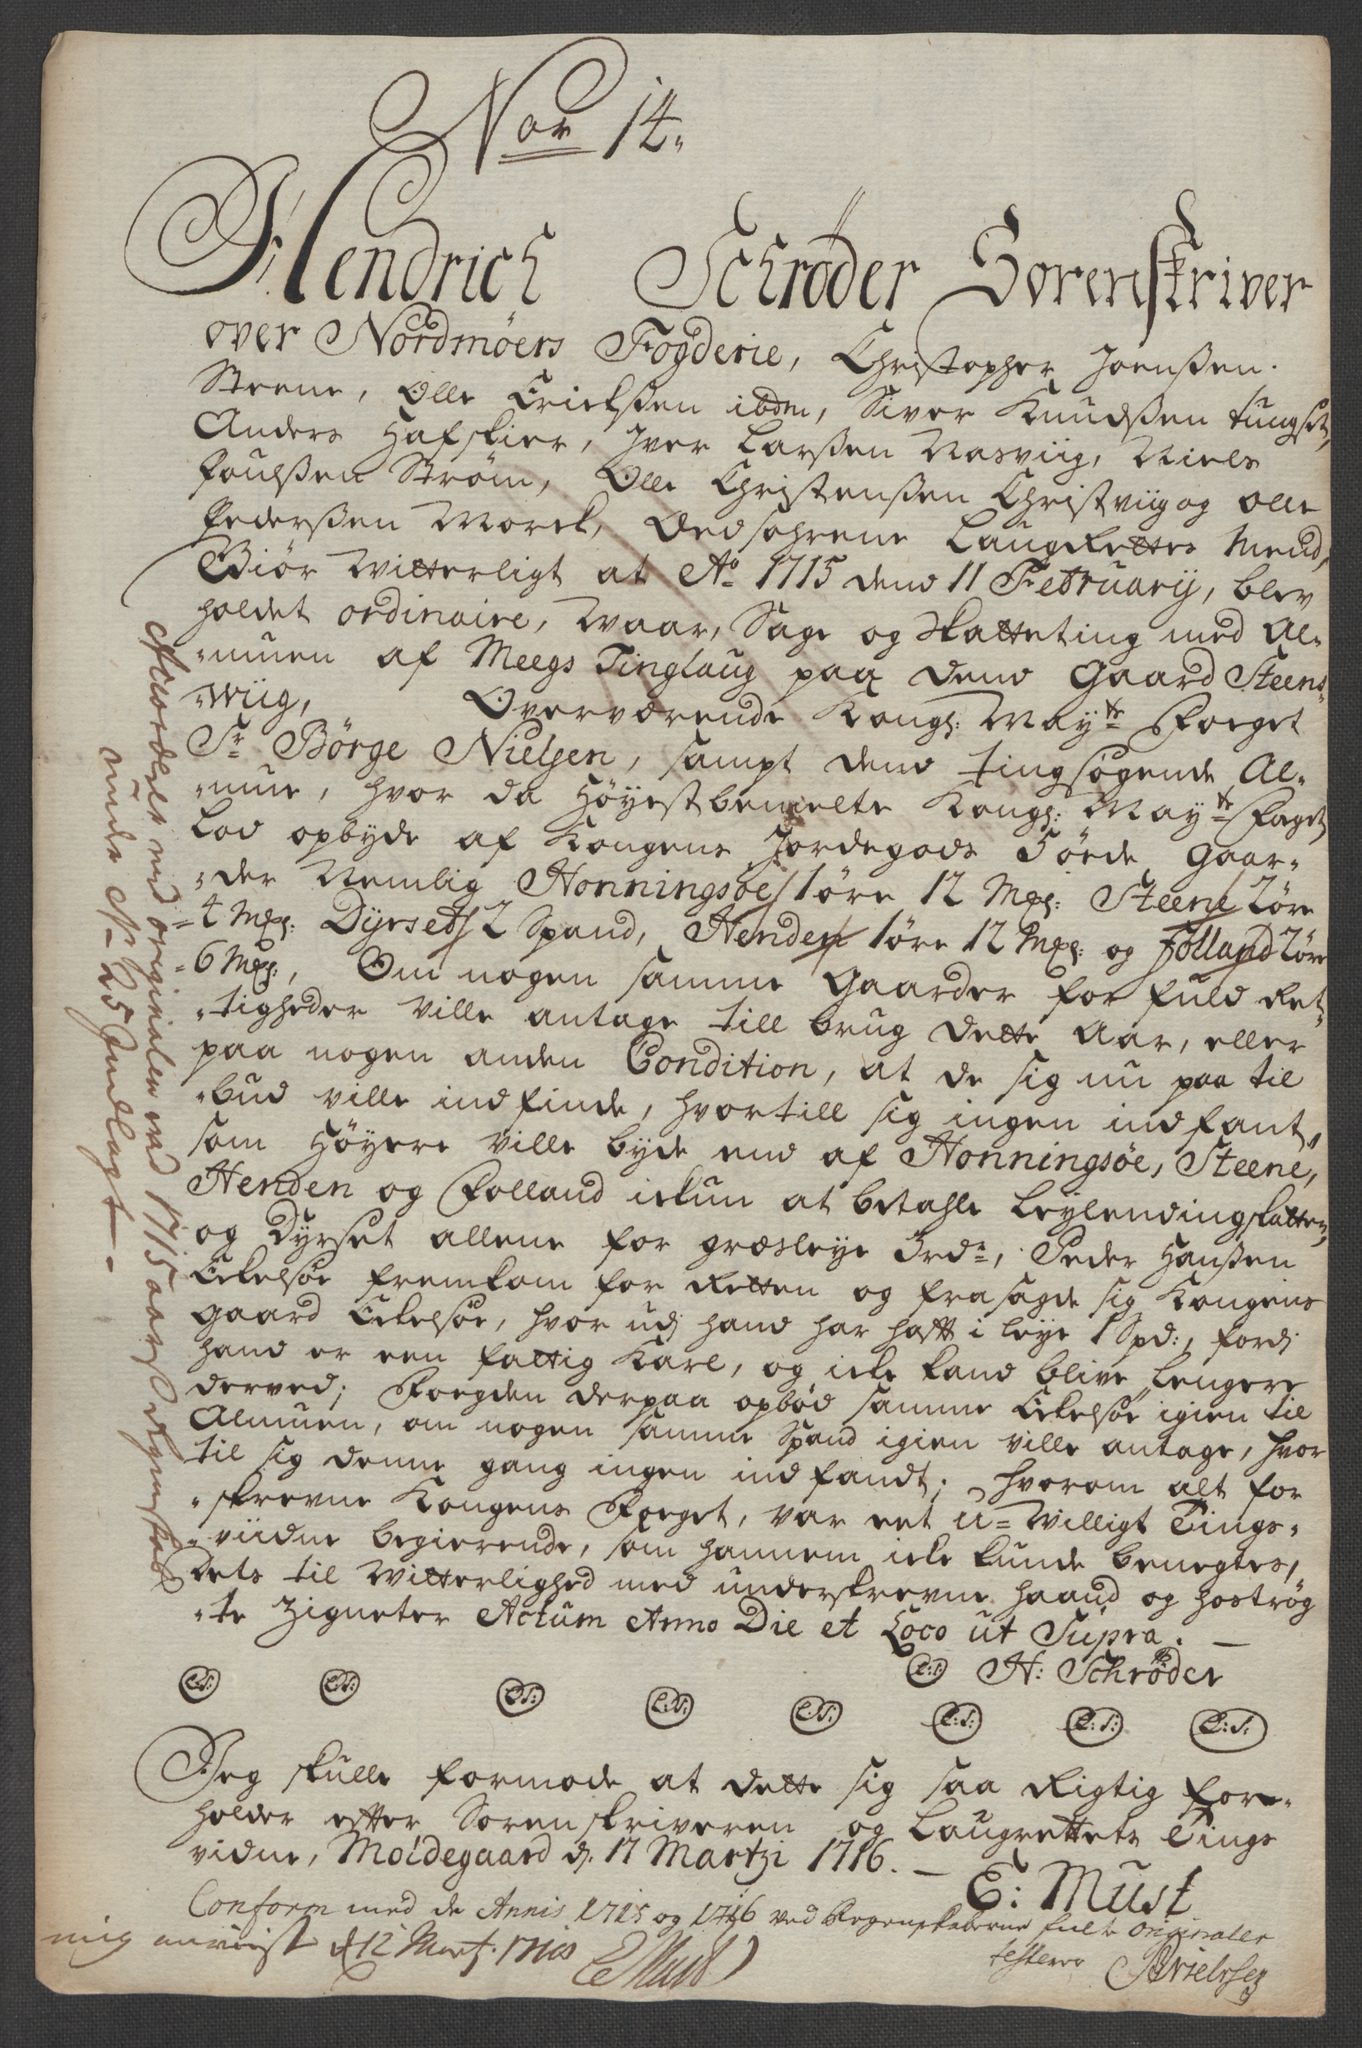 Nor 14.
Hendrich Schrøder Sorenskriver
over Nordmøers Fogderie, Christopher Joenßen
Steene, Olle Erichßen ibdm, Siver Knudßen tungset,
Anders Hafskier, Iver Larßen Nasviig, Niels
Poulßen Strøm, Olle Christenßen Christviig og Olle
Pederßen Morck, Edsohrene LaugRettes Mend,
Giør Witterligt at Ao 1715 dend 11 February, blev
holdet ordinaire, Waar, Sage og Skatteting med Al-
-muen af Meegs Tinglaug paa dend Gaard Steens-
-wiig, Overværende Kongl: Maytz Foeget
Sr Børge Nielsen, sampt dend tingsøgende Al-
-mue, hvor da Høyestbemelte Kongl: Maytz Foget
Lod opbyde af Kongens Jordegods Øde Gaar-
-der Nemlig Honningsøe 1 øre 12 Mrk: Steene 2 øre
4 Mrk: Dyrset 2 Spand, Henden 1 øre 12 Mrk: og Folland 2 øre
6 Mrk:, Om nogen samme Gaarder for fuld Ret-
-tigheder ville antage till brug dette Aar, eller
paa nogen anden Condition, at de sig nu paa til
-bud ville indfinde, hvortill sig ingen indfant,
som Høyere ville byde end af Honningsøe, Steene,
Henden og Folland ickun at betahle Leylendingskatten,
og Dyrset allene for græsleye 3 rdr, Peder Hanßen
Eckelsøe fremkom for Retten og frasagde sig Kongens
Gaard Eckelsøe, hvor udj hand har hafft i leye 1 Spd:, fordj
hand er een fattig Karl, og icke kand blive lengere
derved; Foegden derpaa opbød samme Eckelsøe igien til
Almuen, om nogen samme Spand igien ville antage, hvor
til sig denne gang ingen indfandt; hvorom alt for
-skrevne Kongens Foeget, var eet u-Willigt Tings-
-viidne begierende, som hannem icke kunde benegtes,
Dets til Witterlighed med underskrevne haand og hostrøg
-te Zigneter Actum Anno Die et Loco ut Supra.
L:S: H: Schrøder
L:S: L:S: L:S: L:S: L:S: L:S: L:S: L:S:
Jeg skulle formode at dette sig saa Rigtig for-
holder efter Sorenskriveren og Laugrettets Tings
vidne, Moldegaard d. 17 Martzi 1716.
E: Must
Conform med de Annis 1715 og 1716 ved Regenskaberne fulte originaler
mig anviist d 12 Mart. E Must
testerer SNielsen
ved originalen ved 1715 aars Regenskab
under No 25 Indlagt